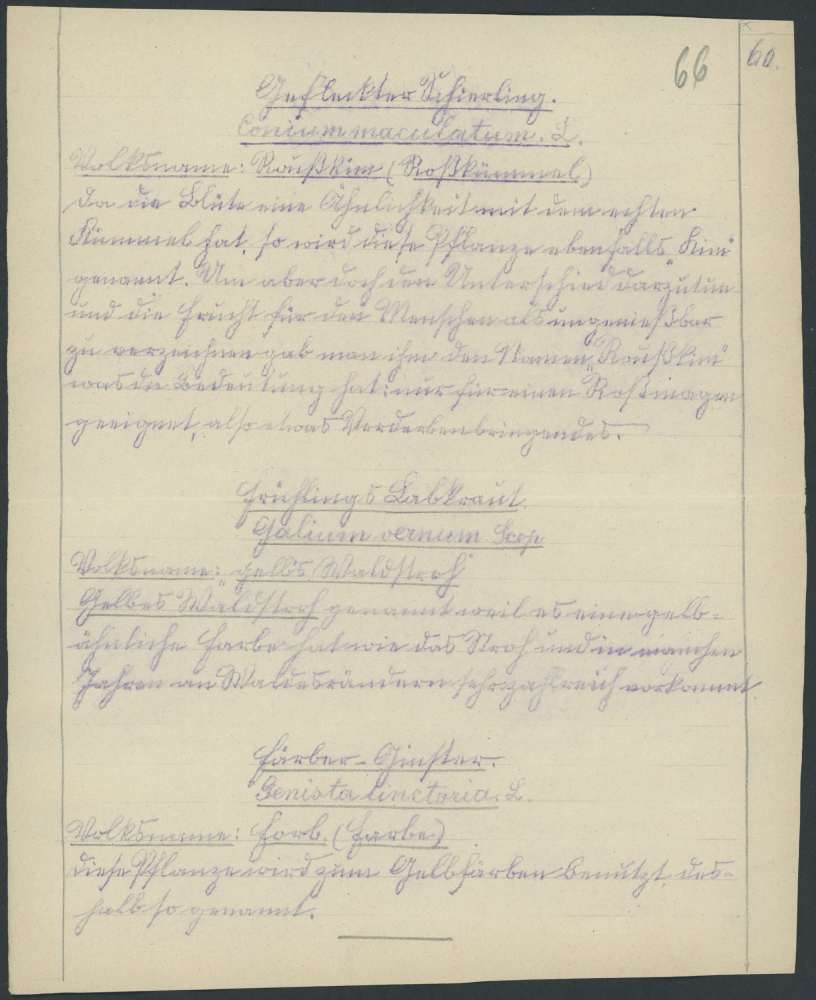 66
60.
Gefleckter Schierling.
Conium maculatum. L.
Volksname: Roußkim (Roßkümmel)
Da die Blüte eine Ähnlichkeit mit dem echten
Kümmel hat, so wird diese Pflanze ebenfalls „Kim"
genannt. Um aber doch den Unterschied darzutun
und die Frucht für den Menschen als ungenießbar
zu verzeichnen gab man ihm den Namen „Roußkim"
was die Bedeutung hat: nur für einen Roßmagen
geeignet, also etwas Verderbenbringendes.
Frühlings Labkraut.
Galium vernum Scop.
Volksname: „gelb's Waldstroh"
Gelbes Waldstroh genannt weil es eine gelb-
ähnliche Farbe hat wie das Stroh und in manchen
Jahren an Waldesrändern sehr zahlreich vorkommt.
Färber-Ginster.
Genista tinctoria. L.
Volksname: Forb. (Farbe)
Diese Pflanze wird zum Gelbfärben benützt, des-
halb so genannt.